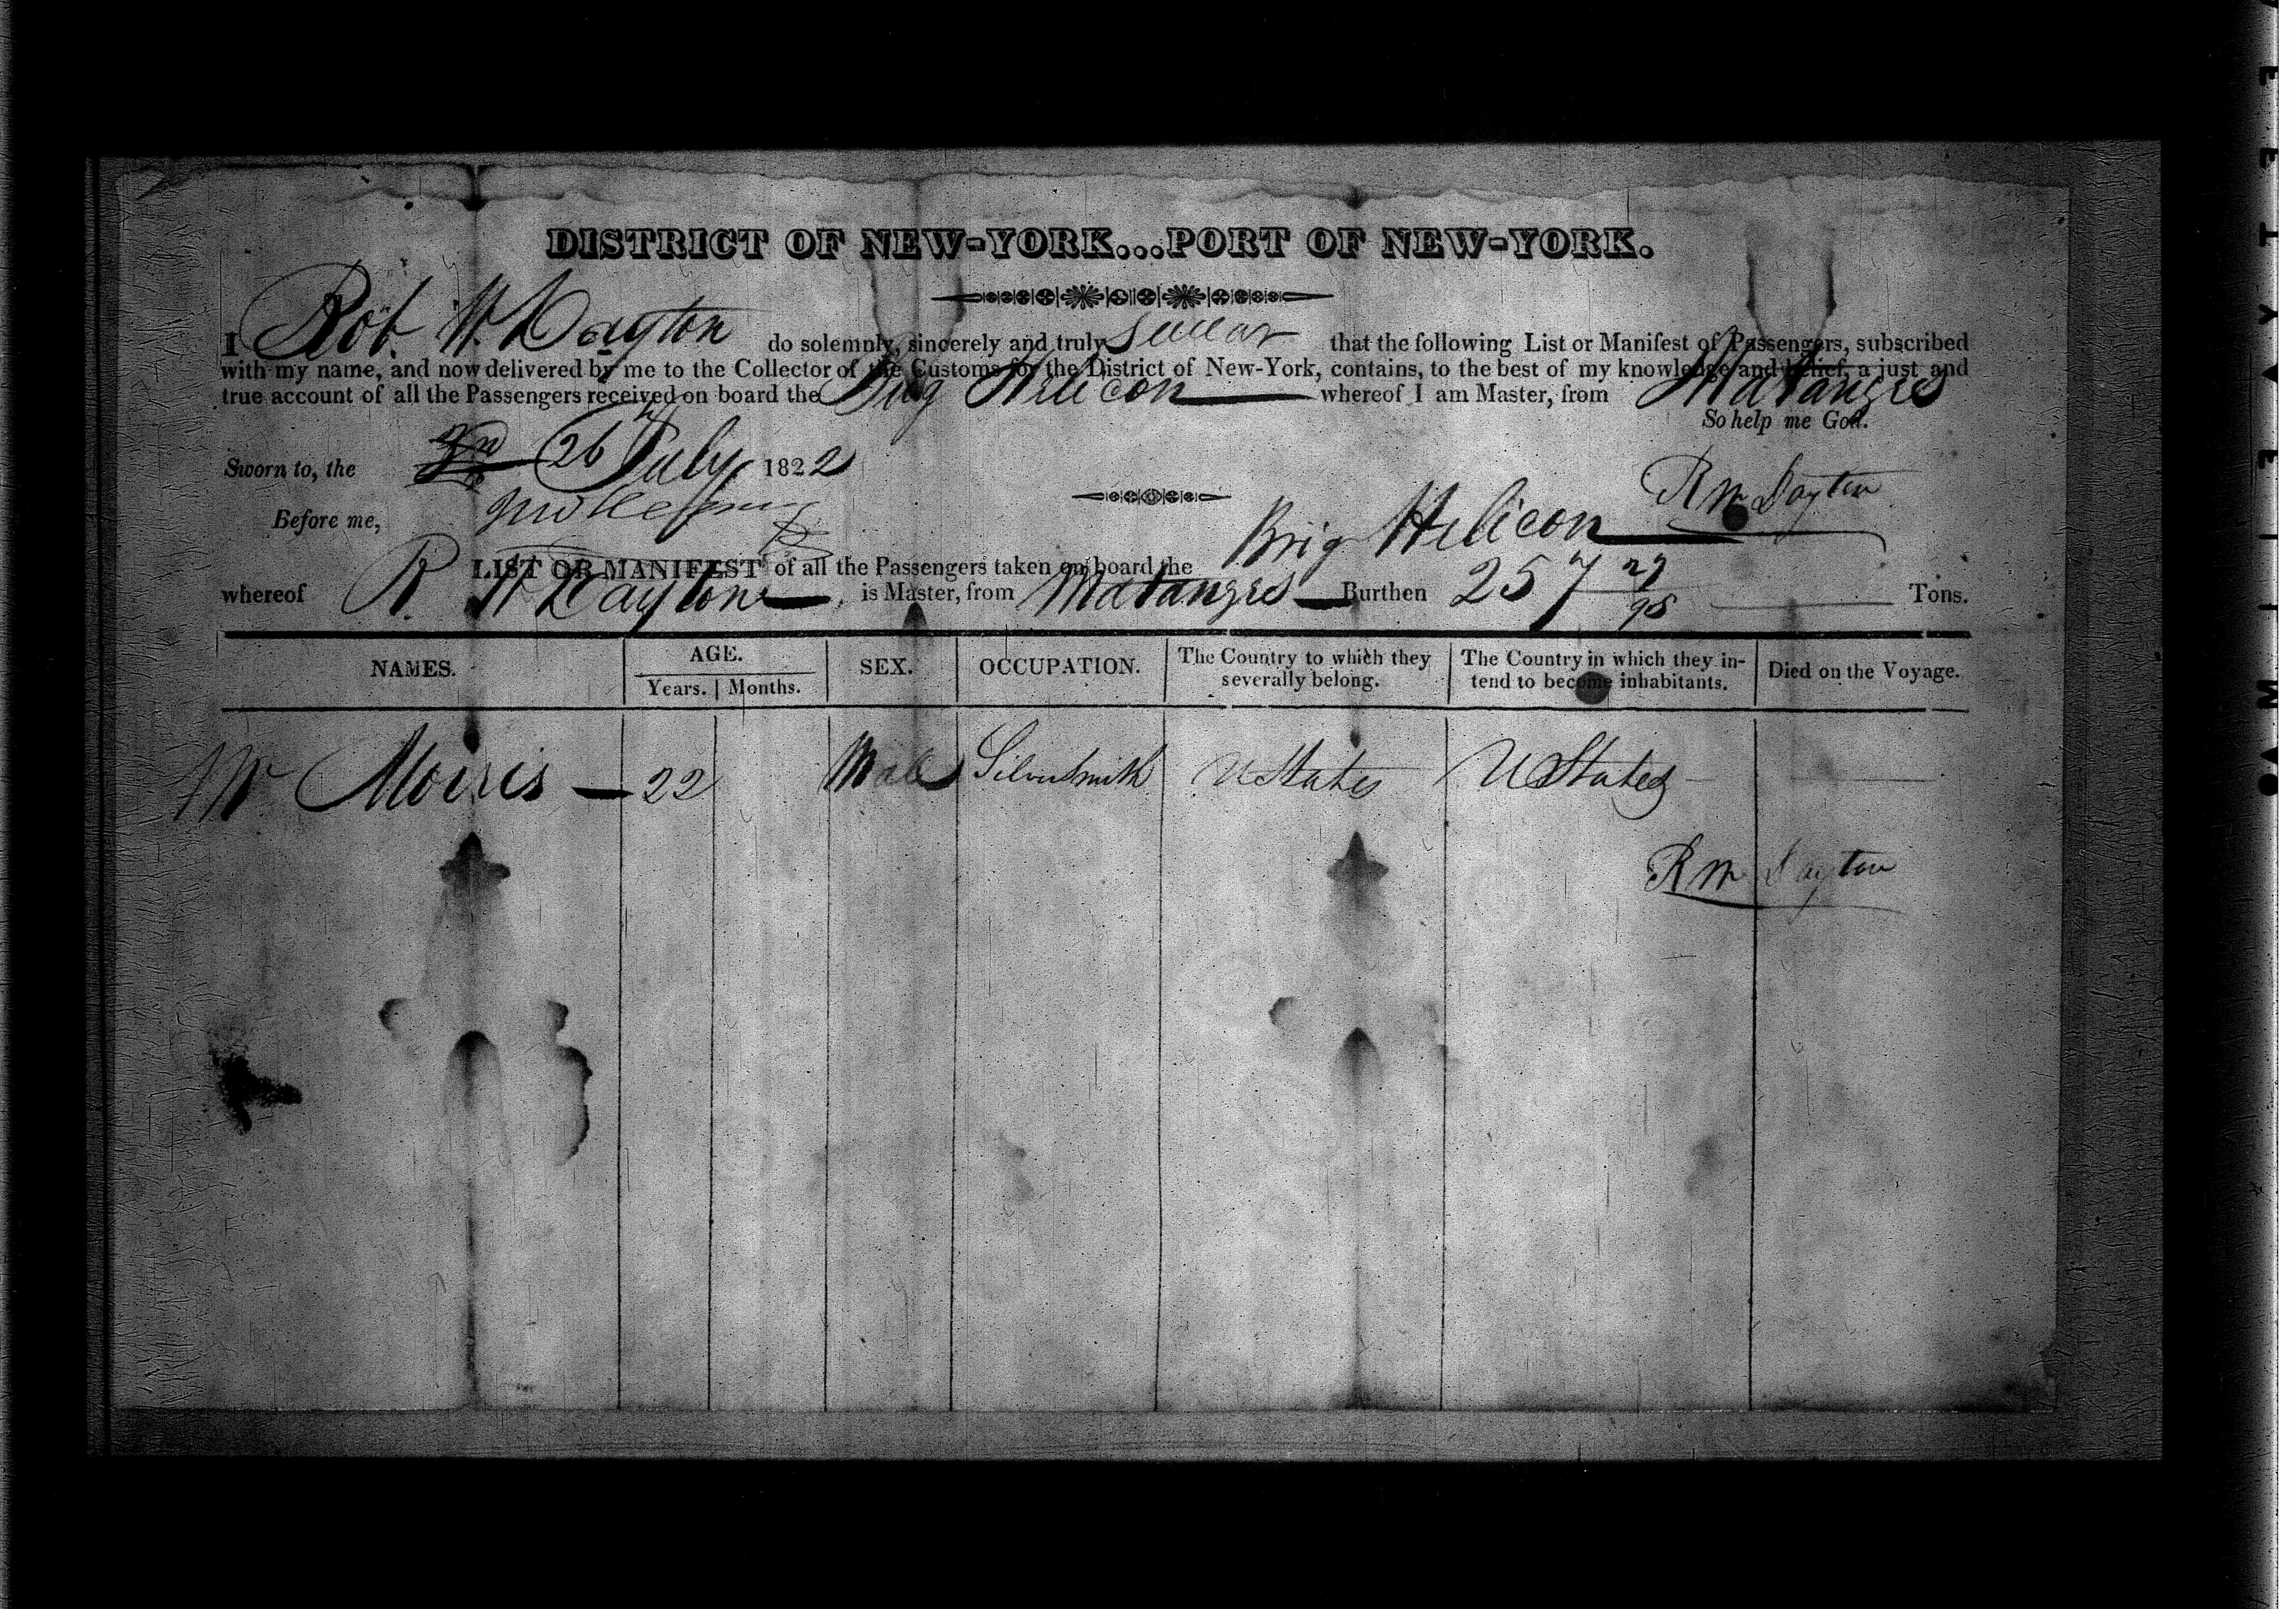 DISTRICT OF NEW-YORK...PORT OF NEW-YORK.
I Rob. W. Dayton do solemnly, sincerely and truly swear that the following List or Manifest of Passengers, subscribed
with my name, and now delivered by me to the Collector of the Customs for the District of New-York, contains, to the best of my knowledge and belief, a just and
true account of all the Passengers received on board the Brig Helicon whereof I am Master, from Matanzes
So help me God.
Sworn to, the 26 July 1822
R W Dayton
Before me,
LIST OR MANIFEST of all the Passengers taken on board the Brig Helicon
whereof R. W Dayton is Master, from Matanzes Burthen 257 29/95 Tons.
NAMES. AGE. SEX. OCCUPATION. The Country to which they severally belong. The Country in which they intend to become inhabitants. Died on the Voyage.
Years. Months.
Mr Morris — 22 Male Silversmith U States U States
R W Dayton